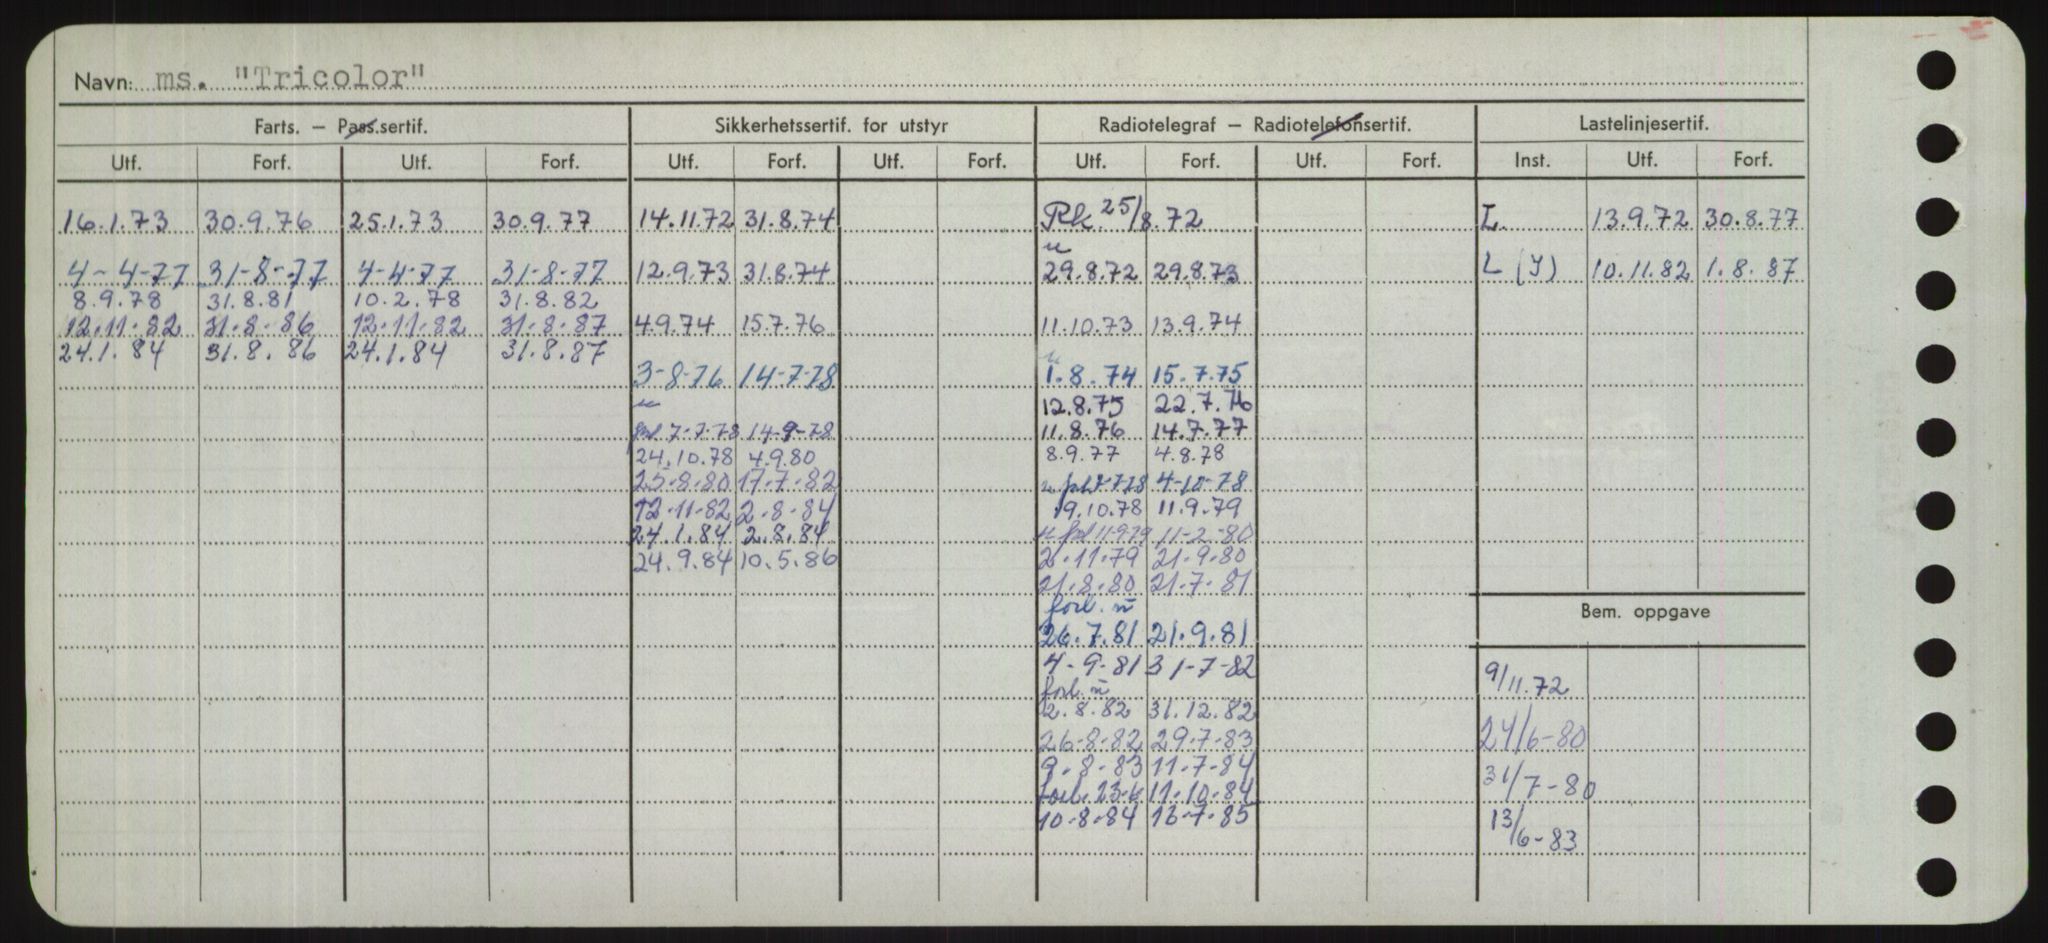 Navn: ms. "Tricolor"
Farts. – Pass.sertif. Sikkerhetssertif. for utstyr Radiotelegraf – Radiotelefonsertif. Lastelinjesertif.
Utf. Forf. Utf. Forf. Utf. Forf. Utf. Forf. Utf. Forf. Utf. Forf. Inst. Utf. Forf.
16.1.73 30.9.76 25.1.73 30.9.77 14.11.72 31.8.74 Rk. 25/8.72 L. 13.9.72 30.8.77
4-4-77 31-8-77 4-4-77 31-8-77 12.9.73 31.8.74 29.8.72 29.8.73 L (Y) 10.11.82 1.8.87
8.9.78 31.8.81 10.2.78 31.8.82
12.11-82 31-8-86 12-11-82 31-8-87 4.9.74 15.7.76 11.10.73 13.9.74
24.1.84 31.8.86 24.1.84 31.8.87
3-8-76 14-7-78 1.8.74 15.7.75
12.8.75 22.7.76
7-7-78 14-9-78 11.8.76 14.7.77
24.10.78 4.9.80 8.9.77 4.8.78
25-8-80 17-7-82 4-10-78
12-11-82 2-8-84 19.10.78 11.9.79
24.1.84 2.8.84 11-9-79 11-2-80
24.9.84 10.5.86 2.11.79 21.9.80
21.8.80 21.7.81
forl. Bem. oppgave
26.7.81 21.9.81
4-9-81 31-7-82 9/11.72
forl.
2.8.82 31.12.82
26-8-82 29.7-83 24/6-80
9.8-83 11-7-84 31/7-80
forl. 23.6 11-10-84
10-8-84 16-7-85 13/6-83